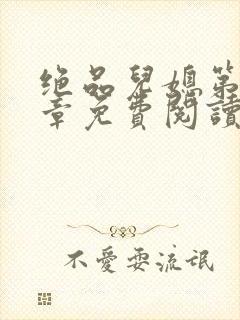 绝品兒媳第
章免費閱讀
不愛耍流氓